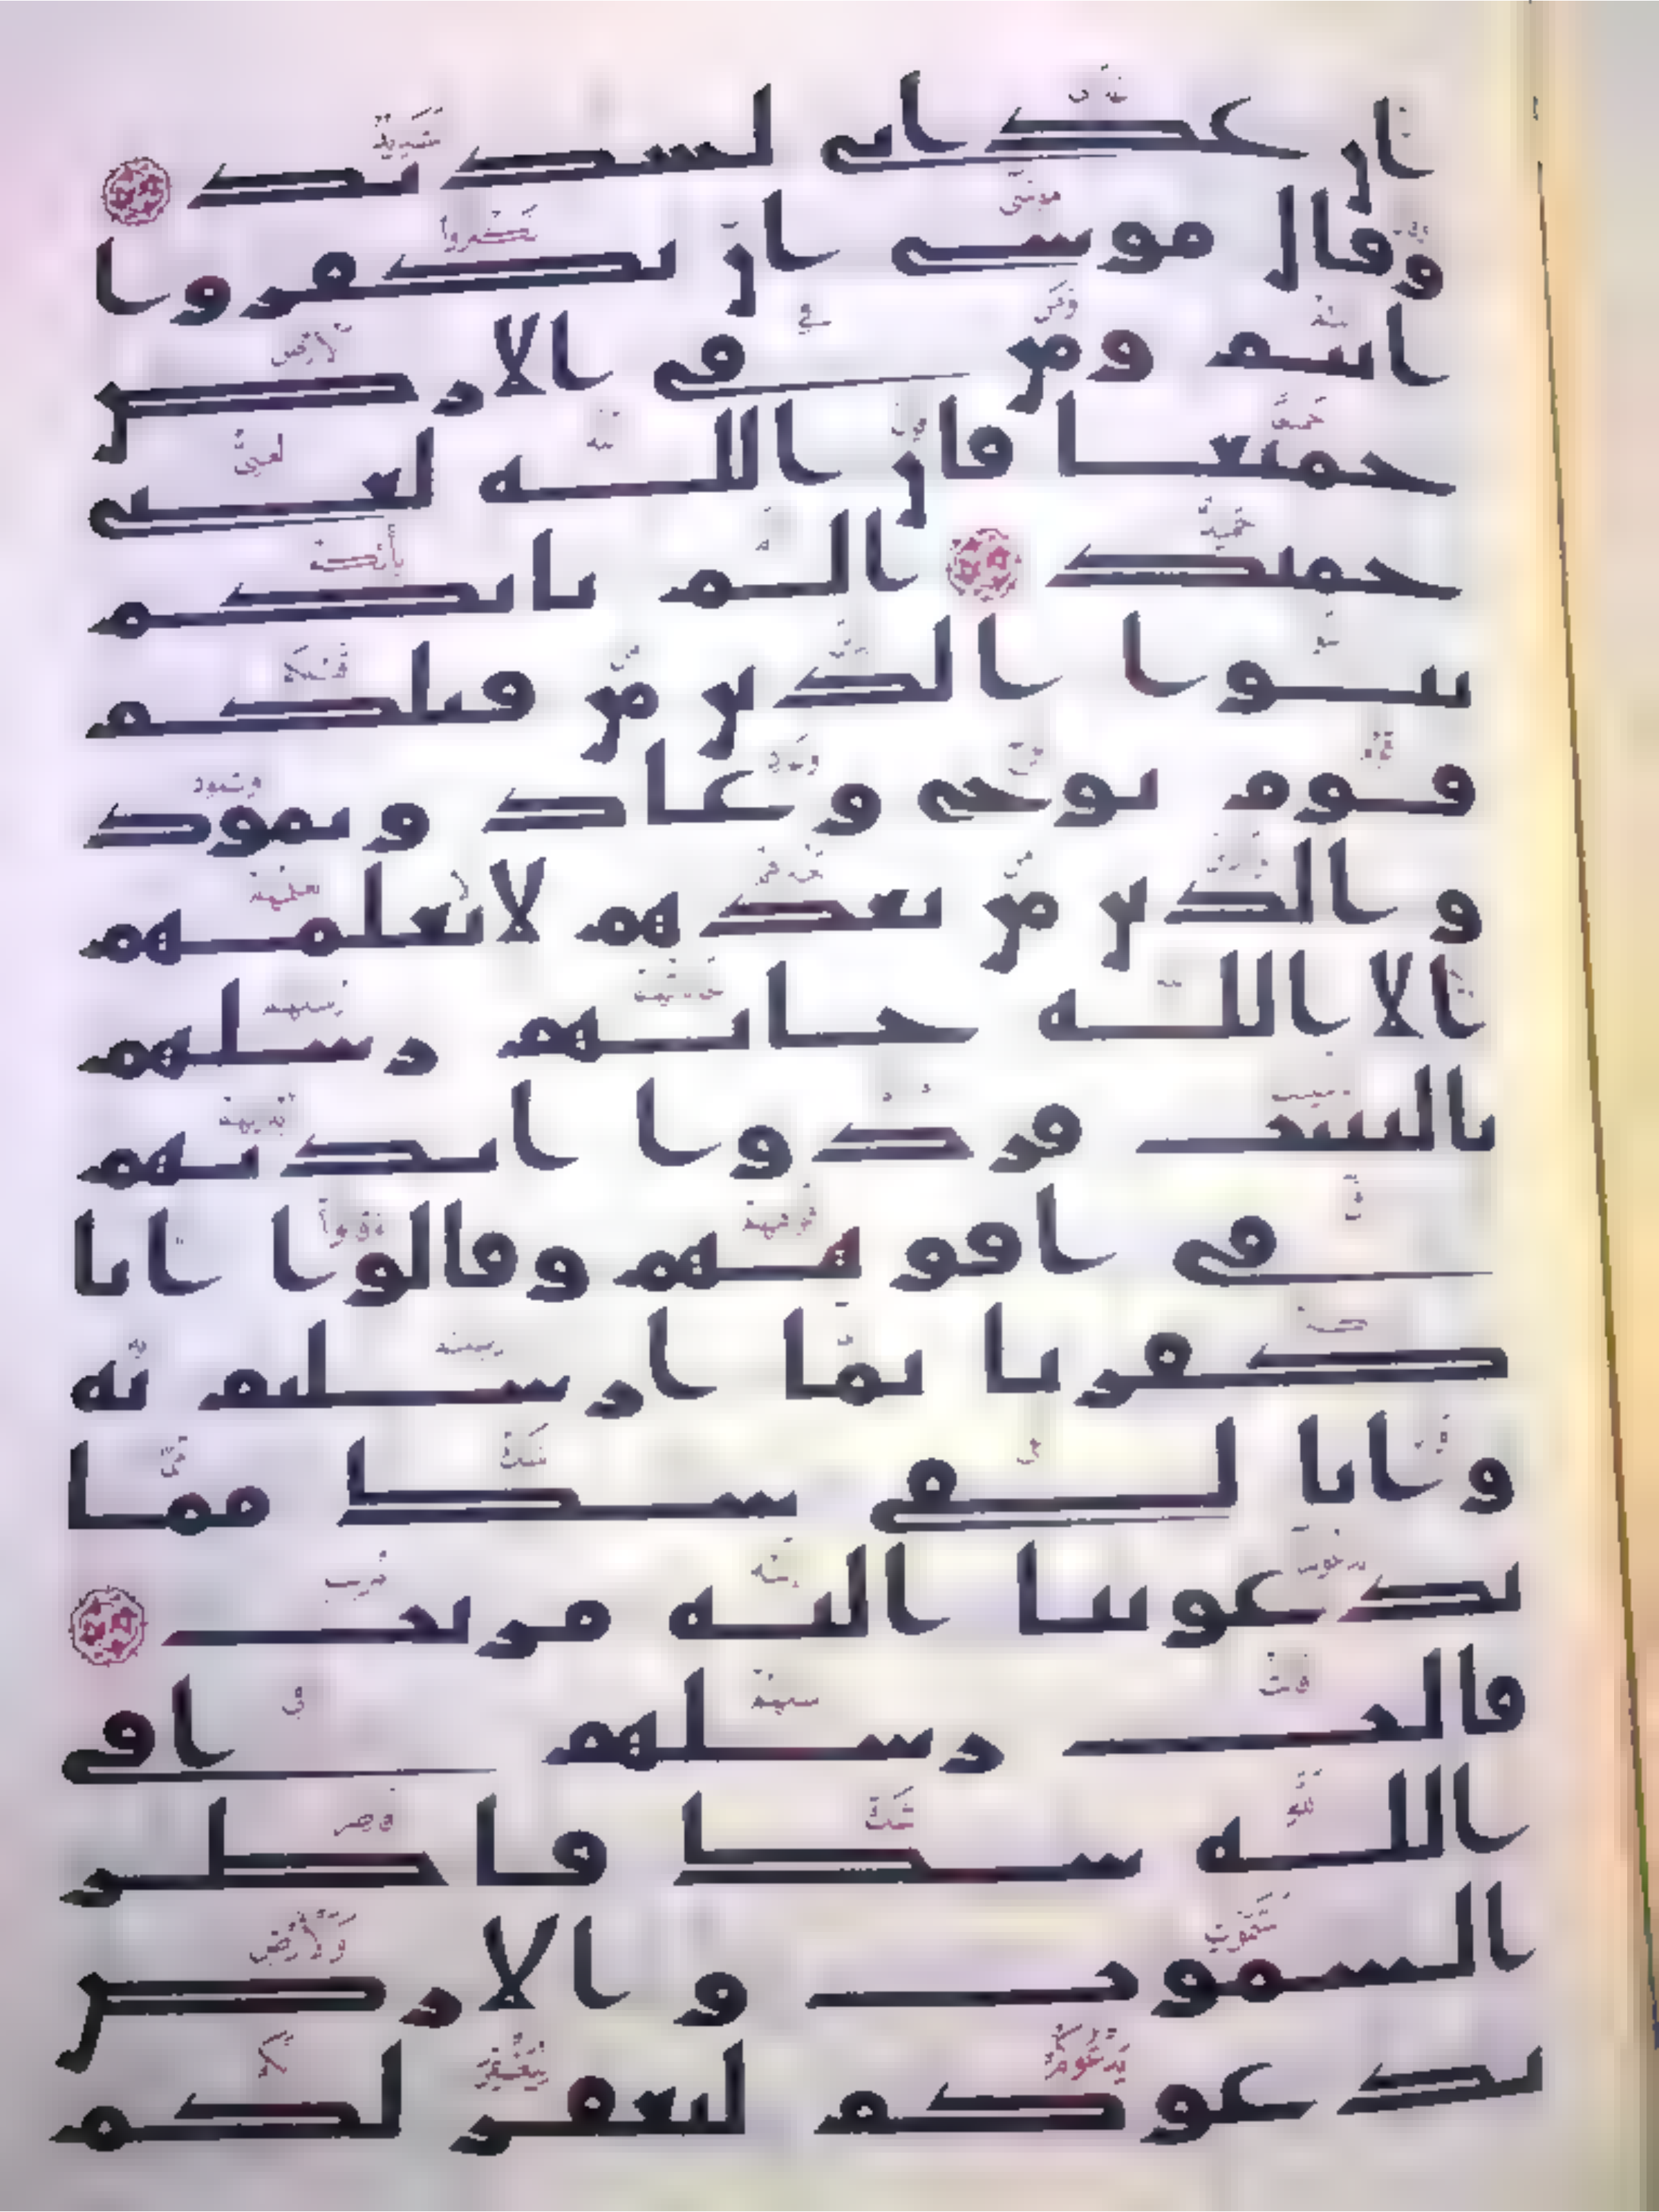 ان عذابى لشديد
وقال موسى ان تكفروا
انتم ومن فى الارض
جميعا فان الله لغنى
حميد الم ياتكم
نبوا الذين من قبلكم
قوم نوح وعاد وثمود
والذين من بعدهم لا يعلمهم
الا الله جاتهم رسلهم
بالبينت فردوا ايديهم
فى افوههم وقالوا انا
كفرنا بما ارسلتم به
وانا لفى شك مما
تدعوننا اليه مريب
قالت رسلهم افى
الله شك فاطر
السموت والارض
يدعوكم ليغفر لكم